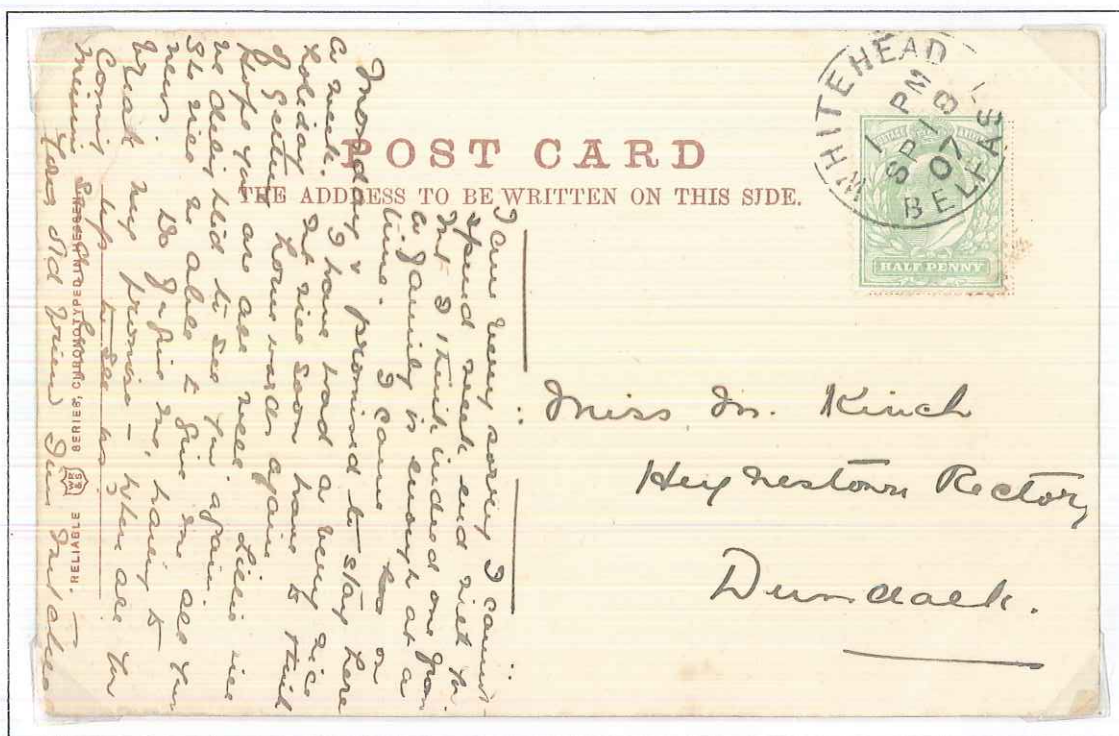 POST CARD
THE ADDRESS TO BE WRITTEN ON THIS SIDE.
WHITEHEAD
1 PM
SP 18
07
BELFAS
HALF PENNY
Miss M. Kinch
Heynestown Rectory
Dundalk.
I am very sorry I cannot
spend week end with you
but I think indeed one from
a family is enough at a
time. I came here on
Monday & promised to stay here
a week. I have had a very nice
holiday but will soon have to think
of getting home wards again
hope you are all well Lillie will
be delighted to see you again.
She will be able to give you all the
news. Do forgive me, having to
break my promise – When are you
coming up to see us
Yours old friend
RELIABLE WR&S SERIES, CHROMOTYPED IN HESSEN.